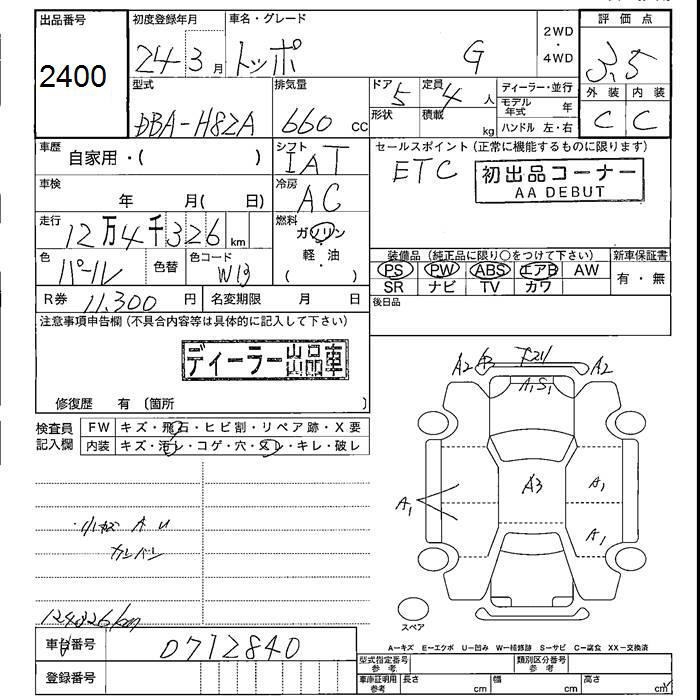 出品番号
2400
初度登録年月
24 3 月
車名・グレード
トッポ G
2WD
・
4WD
評価点
3.5
外装 内装
C C
型式
DBA-H82A
排気量
660 cc
ドア 5
形状
定員 4 人
積載 kg
ディーラー・並行
モデル年式 年
ハンドル 左・右
車歴
自家用・( )
シフト
IAT
セールスポイント (正常に機能するものに限ります)
ETC
初出品コーナー
AA DEBUT
車検
年 月( 日)
冷房
AC
走行
12万4千326 km
燃料
ガソリン
・
軽・油
・
( )
色
パール
色替
色コード
W13
装備品 (純正品に限り○をつけて下さい)
PS PW ABS エアB AW
SR ナビ TV カワ
新車保証書
有・無
R券 11,300 円
名変期限 月 日
後日品
注意事項申告欄(不具合内容等は具体的に記入して下さい)
ディーラー出品車
修復歴 有 〔箇所 〕
検査員
記入欄
FW キズ・飛石・ヒビ割・リペア跡・X要
内装 キズ・汚レ・コゲ・穴・スレ・キレ・破レ
A2
A2
A1 S1
A3
A1
A1
A1
A U
124326km
スペア
車台番号
0712840
登録番号
A－キズ E－エクボ U－凹み W－補修跡 S－サビ C－腐食 XX－交換済
型式指定番号
参考
類別区分番号
参考
車庫証明用
参考
長さ cm
幅 cm
高さ cm